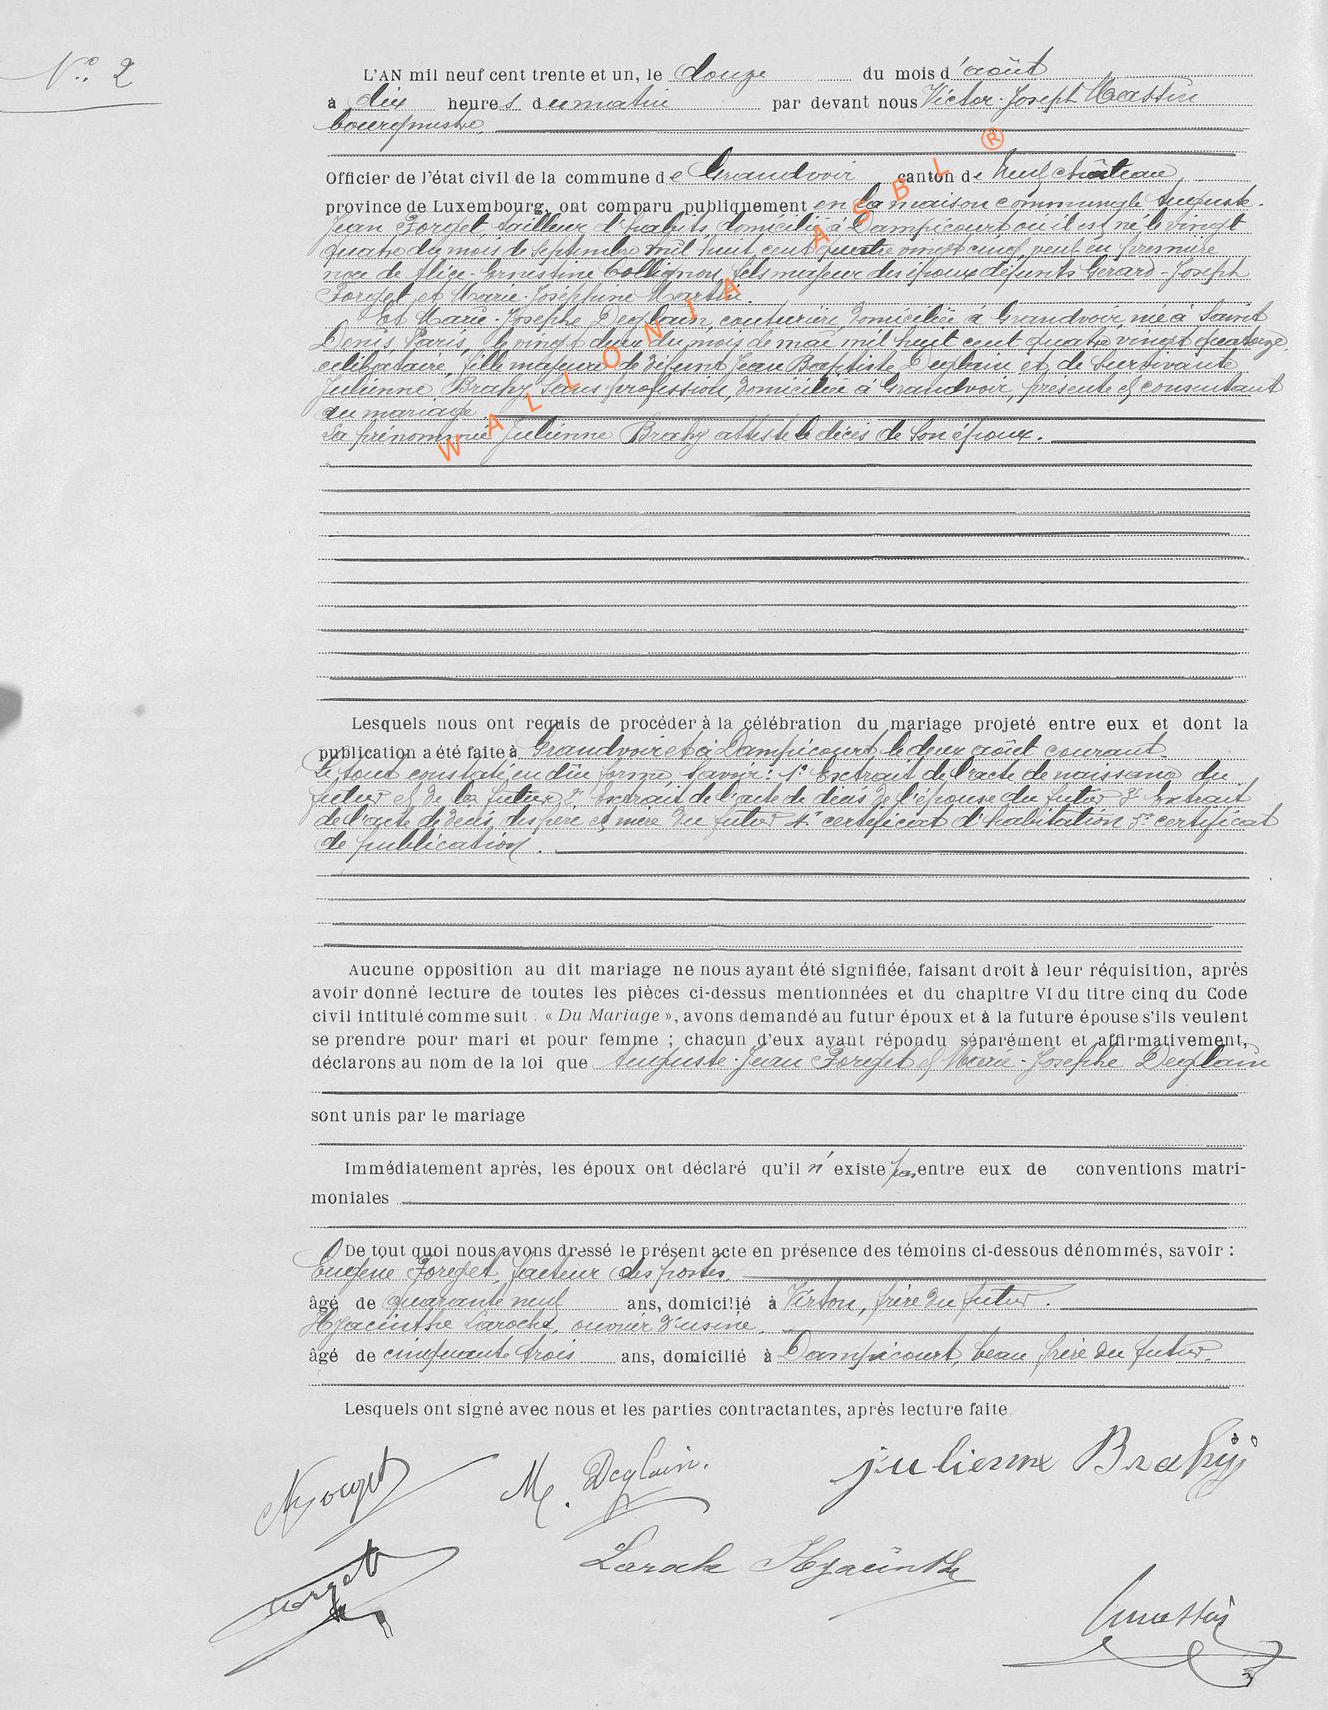 N° 2
L'AN mil neuf cent trente et un, le douze du mois d'août
à dix heures du matin par devant nous Victor-Joseph Massin
bourgmestre,
Officier de l'état civil de la commune de Grandvoir canton de Neufchâteau,
province de Luxembourg, ont comparu publiquement en la maison communale Auguste-
Jean Forget, tailleur d'habits, domicilié à Dampicourt où il est né le vingt
quatre du mois de septembre mil huit cent quatre vingt cinq, veuf en première
noce de Alice-Ernestine Collignon, fils majeur des époux défunts Gerard-Joseph
Forget et Marie-Joséphine Martin.
Et Marie-Josephe Deglain, couturière, domiciliée à Grandvoir, née à Saint
Denis Paris, le vingt deux du mois de mai mil huit cent quatre vingt quatorze,
célibataire, fille majeure de défunt Jean Baptiste Deglain et de survivante
Julienne Brahy, sans profession, domiciliée à Grandvoir, présente et consentant
au mariage.
La prénommée Julienne Brahy atteste le décès de son époux.
WALLONIA ASBL ®
Lesquels nous ont requis de procéder à la célébration du mariage projeté entre eux et dont la
publication a été faite à Grandvoir et à Dampicourt le deux août courant
le tout constaté en due forme, savoir : 1° Extrait de l'acte de naissance du
futur et de la future 2° Extrait de l'acte de décès de l'épouse du futur 3° Extrait
de l'acte de décès des père et mère du futur 4° certificat d'habitation 5° certificat
de publication.
Aucune opposition au dit mariage ne nous ayant été signifiée, faisant droit à leur réquisition, après
avoir donné lecture de toutes les pièces ci-dessus mentionnées et du chapitre VI du titre cinq du Code
civil intitulé comme suit : « Du Mariage », avons demandé au futur époux et à la future épouse s'ils veulent
se prendre pour mari et pour femme ; chacun d'eux ayant répondu séparément et affirmativement,
déclarons au nom de la loi que Auguste-Jean Forget et Marie-Josephe Deglain
sont unis par le mariage
Immédiatement après, les époux ont déclaré qu'il n'existe pas entre eux de conventions matri-
moniales
De tout quoi nous avons dressé le présent acte en présence des témoins ci-dessous dénommés, savoir :
Eugène Forget, facteur des postes,
âgé de quarante neuf ans, domicilié à Virton, frère du futur.
Hyacinthe Laroche, ouvrier d'usine,
âgé de cinquante trois ans, domicilié à Dampicourt, beau frère du futur.
Lesquels ont signé avec nous et les parties contractantes, après lecture faite.
M. Deglain. julienne Brahy
Forget
Hyacinthe
Massin